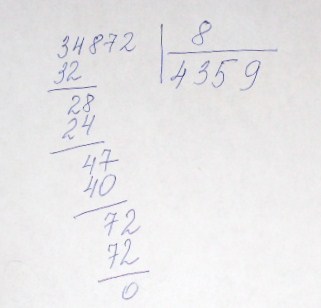 34872 8
32 4359
28
24
47
40
72
72
0